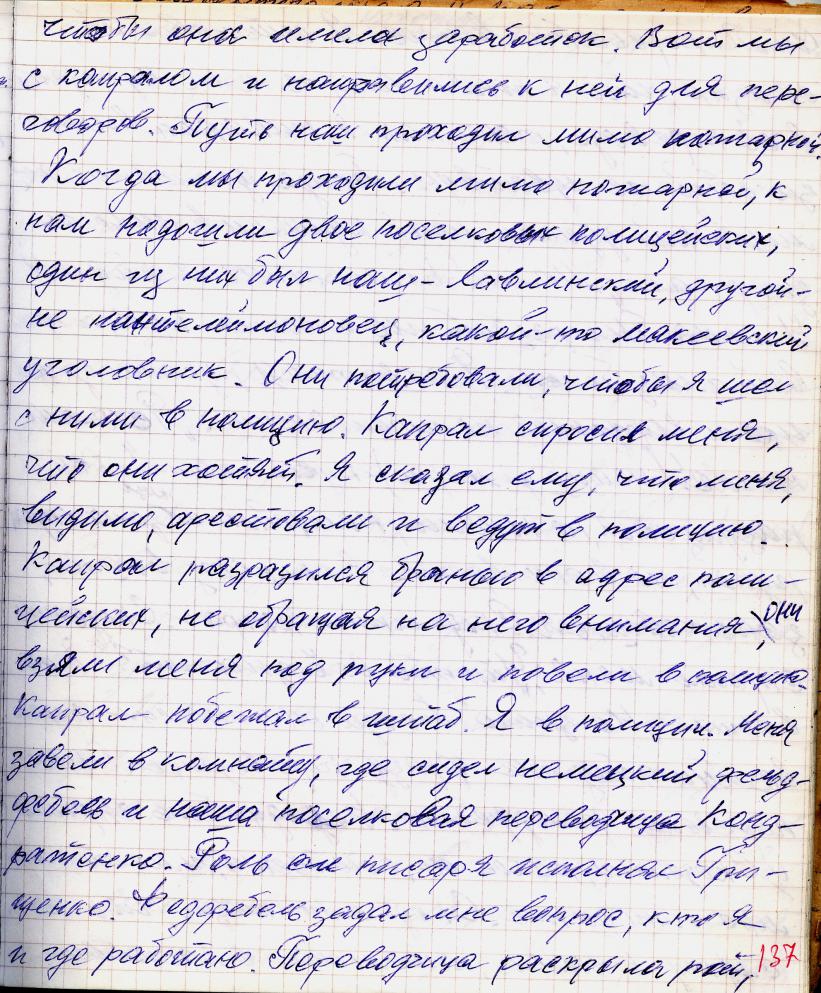 чтобы она имела заработок. Вот мы
с капралом и направились к ней для пере-
говоров. Путь наш проходил мимо пожарной.
Когда мы проходили мимо пожарной, к
нам подошли двое поселковых полицейских,
один из них был наш - Лавлинский, другой -
не пантелеймоновец, какой-то макеевский
уголовник. Они потребовали, чтобы я шёл
с ними в полицию. Капрал спросил меня,
что они хотят. Я сказал ему, что меня,
видимо, арестовали и ведут в полицию.
Капрал разразился бранью в адрес поли-
цейских, не обращая на него внимания, они
взяли меня под руки и повели в полицию.
Капрал побежал в штаб. Я в полиции. Меня
завели в комнату, где сидел немецкий фельд-
фебель и наша поселковая переводчица Конд-
ратенко. Роль писаря исполнял Гри-
щенко. Федфебель задал мне вопрос, кто я
и где работаю. Переводчица раскрыла рот,
137